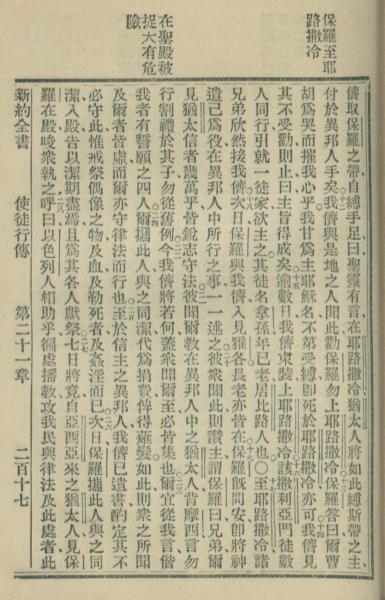 保羅至耶
路撒冷
在聖殿被
捉大有危
險
儕取保羅之帶自縛手足曰聖靈有言在耶路撒冷猶太人將如此縛斯帶之主
付於異邦人手矣我儕與是地之人聞此勸保羅勿上耶路撒冷保羅答曰爾曹
胡為哭而摧我心乎我甘為主耶穌名不第受縛卽死於耶路撒冷亦可我儕見
其不受勸則止曰主旨得成矣逾數日我儕束裝上耶路撒冷該撒利亞門徒數
人同行引就一徒家欲主之其徒名拿孫年已老居比路人也〇至耶路撒冷諸
兄弟欣然接我儕次日保羅與我儕入見雅各長老亦皆在保羅旣問安卽將神
遣己為役在異邦人中所行之事一一述之彼衆聞此則讚主謂保羅曰兄弟爾
見猶太信者幾萬乎皆銳志守法彼聞爾教在異邦人中之猶太人背摩西言勿
行割禮於其子勿從舊例今我儕將若何蓋衆聞爾至必皆集也爾宜從我言偕
我者有誓願之四人爾攜此人與之同潔代為捐費俾得薙髮如此則衆之所聞
及爾者皆虛而爾亦守律法而行也至於信主之異邦人我儕已遺書酌定其不
必守此惟戒祭偶像之物及血及勒死者及姦淫而已次日保羅攜此人與之同
潔入殿告以潔期盡滿且為其各人獻祭七日將竟自亞西亞來之猶太人見保
羅在殿唆衆執之呼曰以色列人相助乎徧處播教攻我民與律法及此處者此
新約全書
使徒行傳
第二十一章
二百十七